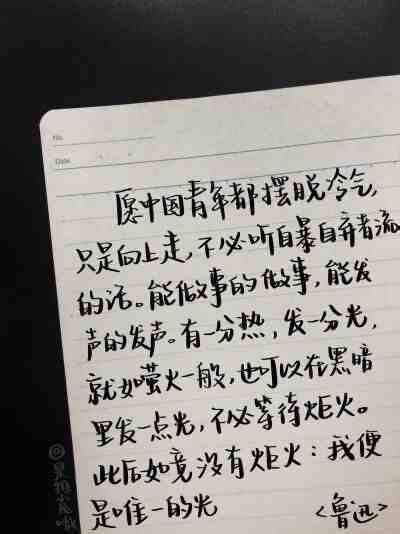 No.
Date
愿中国青年都摆脱冷气,
只是向上走,不必听自暴自弃者流
的话。能做事的做事,能发
声的发声。有一分热,发一分光,
就如萤火一般,也可以在黑暗
里发一点光,不必等待炬火。
此后如竟没有炬火:我便
是唯一的光
<鲁迅>